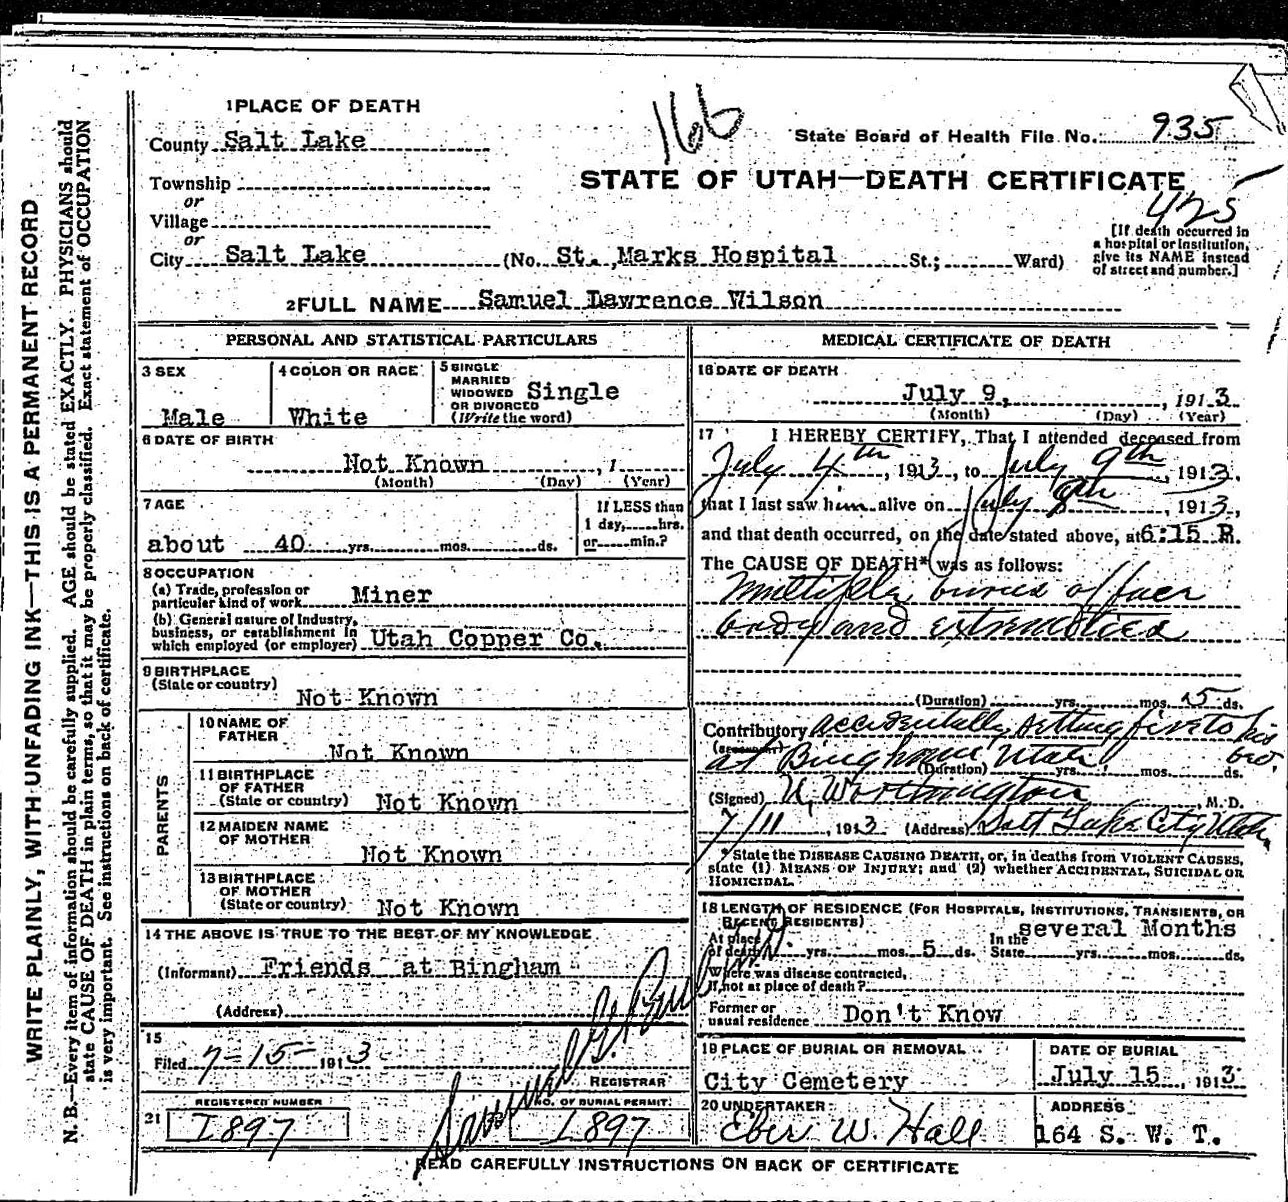 166
1 PLACE OF DEATH
State Board of Health File No. 935
County Salt Lake
STATE OF UTAH—DEATH CERTIFICATE
Township
or
Village
or
425
[If death occurred in
a hospital or institution,
give its NAME instead
of street and number.]
City Salt Lake (No. St. Marks Hospital St.; Ward)
2 FULL NAME Samuel Lawrence Wilson
PERSONAL AND STATISTICAL PARTICULARS
3 SEX
Male
4 COLOR OR RACE
White
5 SINGLE
MARRIED
WIDOWED
OR DIVORCED
(Write the word)
Single
6 DATE OF BIRTH
Not Known , 1
(Month) (Day) (Year)
7 AGE
about 40 yrs. mos. ds.
If LESS than
1 day, hrs.
or min.?
8 OCCUPATION
(a) Trade, profession or
particular kind of work Miner
(b) General nature of Industry,
business, or establishment in
which employed (or employer) Utah Copper Co.
9 BIRTHPLACE
(State or country)
Not Known
PARENTS
10 NAME OF
FATHER
Not Known
11 BIRTHPLACE
OF FATHER
(State or country) Not Known
12 MAIDEN NAME
OF MOTHER
Not Known
13 BIRTHPLACE
OF MOTHER
(State or country) Not Known
14 THE ABOVE IS TRUE TO THE BEST OF MY KNOWLEDGE
(Informant) Friends at Bingham
(Address)
15
Filed 7-15- 1913
Samuel G.
REGISTRAR
21
REGISTERED NUMBER
I897
NO. OF BURIAL PERMIT
I897
MEDICAL CERTIFICATE OF DEATH
16 DATE OF DEATH
July 9, , 1913
(Month) (Day) (Year)
17 I HEREBY CERTIFY, That I attended deceased from
July 4th, 1913, to July 9th, 1913,
that I last saw him alive on July 8th, 1913,
and that death occurred, on the date stated above, at 6:15 P.M.
The CAUSE OF DEATH* was as follows:
Multiple burns of face
body and extremities
(Duration) yrs. mos. 5 ds.
Contributory accidentally setting fire to his
at Bingham Utah
(Duration) yrs. mos. ds.
(Signed) U. Worthington, M. D.
7/11, 1913 (Address) Salt Lake City Utah
* State the DISEASE CAUSING DEATH, or, in deaths from VIOLENT CAUSES,
state (1) MEANS OF INJURY; and (2) whether ACCIDENTAL, SUICIDAL OR
HOMICIDAL.
18 LENGTH OF RESIDENCE (FOR HOSPITALS, INSTITUTIONS, TRANSIENTS, OR
RECENT RESIDENTS) several Months
At place
of death yrs. mos. 5 ds. In the
State yrs. mos. ds.
Where was disease contracted,
If not at place of death?
Former or
usual residence Don't Know
19 PLACE OF BURIAL OR REMOVAL
City Cemetery
DATE OF BURIAL
July 15, 1913
20 UNDERTAKER
Eber W. Hall
ADDRESS
164 S. W. T.
READ CAREFULLY INSTRUCTIONS ON BACK OF CERTIFICATE
WRITE PLAINLY, WITH UNFADING INK—THIS IS A PERMANENT RECORD
N. B.—Every item of information should be carefully supplied. AGE should be stated EXACTLY. PHYSICIANS should
state CAUSE OF DEATH in plain terms, so that it may be properly classified. Exact statement of OCCUPATION
is very important. See instructions on back of certificate.